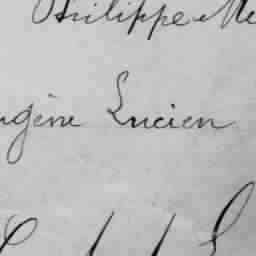 Philippe Me
ugène Lucien